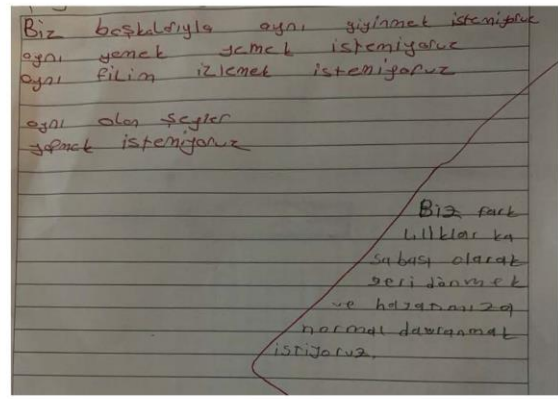 Biz başkalarıyla aynı giyinmek istemiyoruz
aynı yemek yemek istemiyoruz
aynı filim izlemek istemiyoruz
aynı olan şeyler
yapmak istemiyoruz
Biz fark
lılıklar ka
sabası olarak
geri dönmek
ve hayatımıza
normal davranmak
istiyoruz.